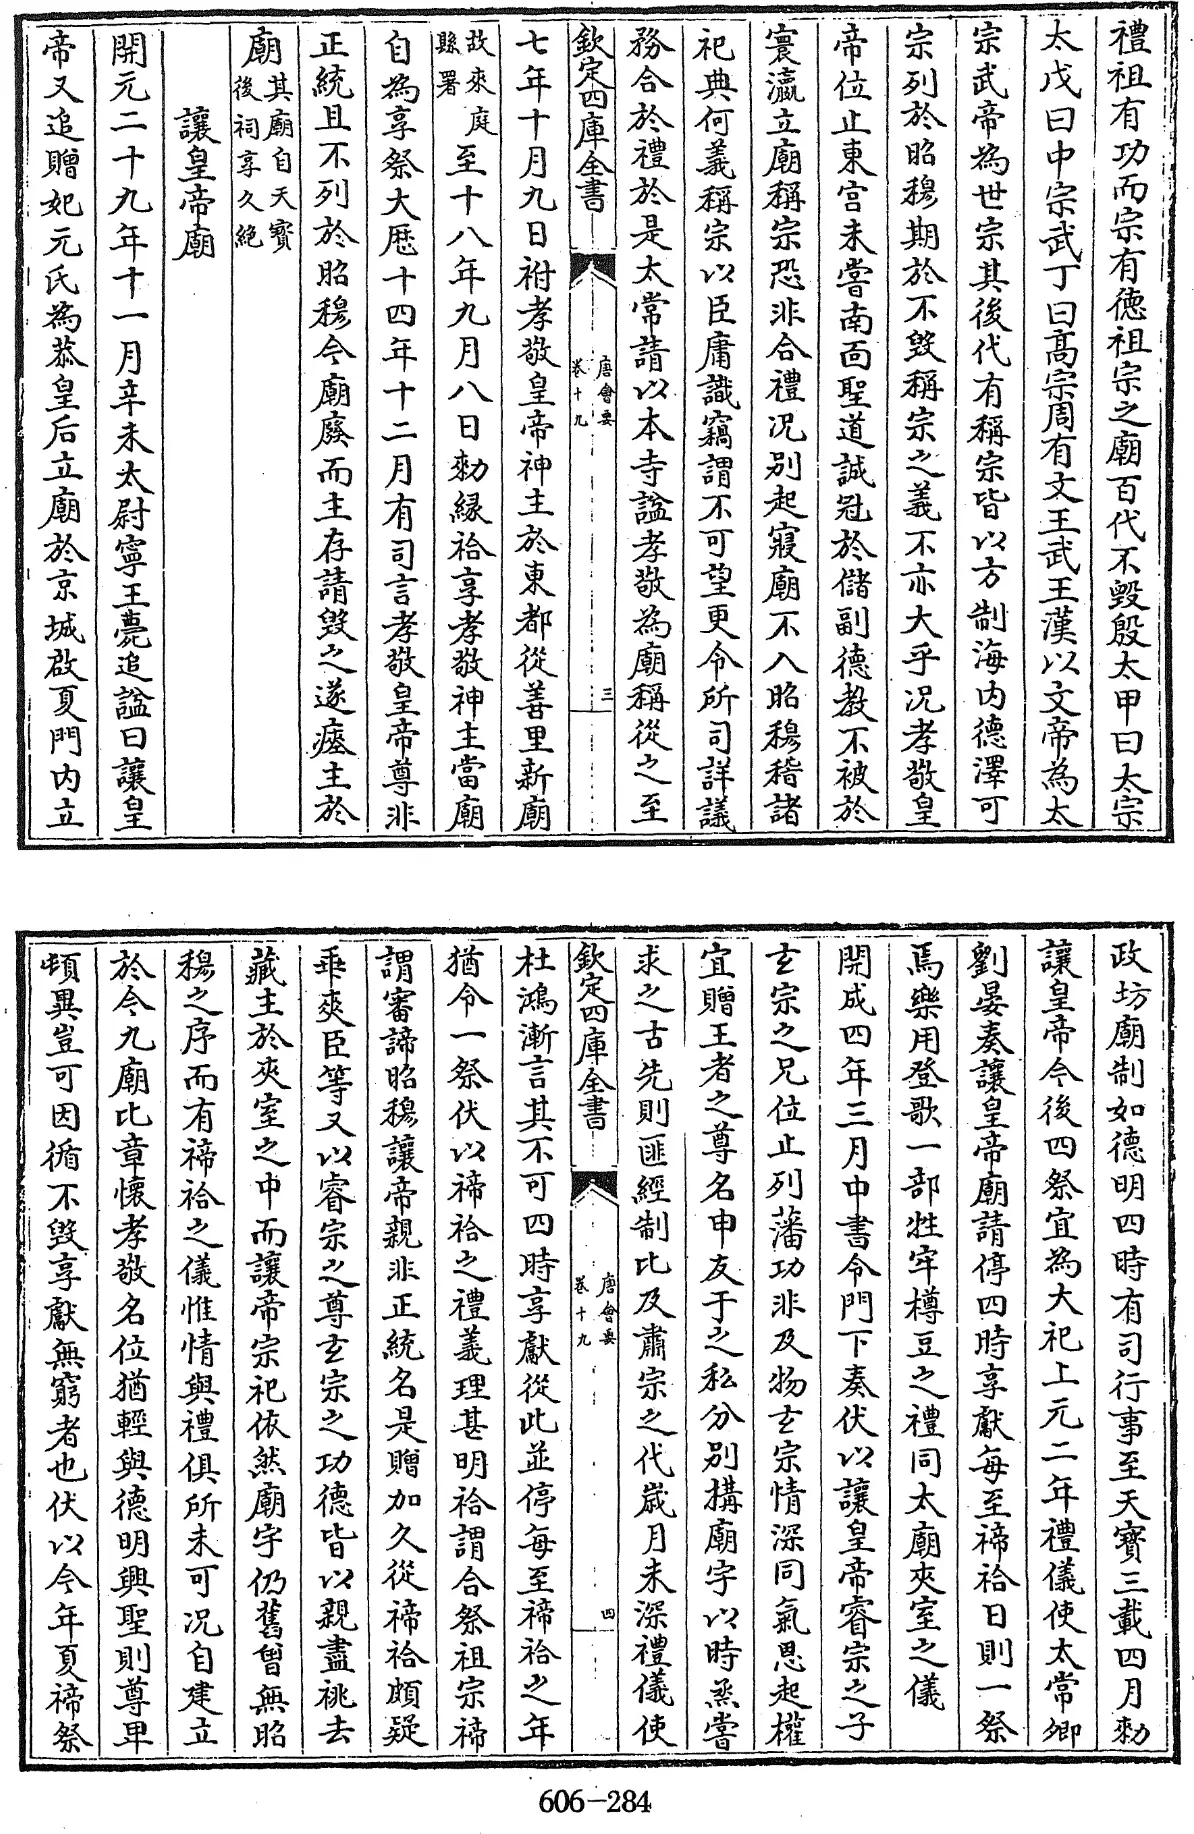 禮祖有功而宗有德祖宗之廟百代不毀殷太甲曰太宗
太戊曰中宗武丁曰髙宗周有文王武王漢以文帝為太
宗武帝為世宗其後代有稱宗皆以方制海内德澤可
宗列於昭穆期於不毀稱宗之義不亦大乎况孝敬皇
帝位止東宫未嘗南面聖道誠冠於儲副德教不被於
寰瀛立廟稱宗恐非合禮况别起寢廟不入昭穆稽諸
祀典何義稱宗以臣庸識竊謂不可望更令所司詳議
務合於禮於是太常請以本寺諡孝敬為廟稱從之至
欽定四庫全書
唐會要
卷十九
三
七年十月九日祔孝敬皇帝神主於東都從善里新廟
故來庭
縣署
至十八年九月八日勅縁祫享孝敬神主當廟
自為享祭大厯十四年十二月有司言孝敬皇帝尊非
正統且不列於昭穆今廟廢而主存請毀之遂瘞主於
廟
其廟自天寳
後祠享久絶
讓皇帝廟
開元二十九年十一月辛未太尉寧王薨追諡曰讓皇
帝又追贈妃元氏為恭皇后立廟於京城啟夏門内立
政坊廟制如德明四時有司行事至天寳三載四月勅
讓皇帝今後四祭宜為大祀上元二年禮儀使太常卿
劉晏奏讓皇帝廟請停四時享獻每至禘祫日則一祭
焉樂用登歌一部牲牢樽豆之禮同太廟夾室之儀
開成四年三月中書令門下奏伏以讓皇帝睿宗之子
玄宗之兄位止列藩功非及物玄宗情深同氣思起權
宜贈王者之尊名申友于之私分别搆廟宇以時烝嘗
求之古先則匪經制比及肅宗之代歳月未深禮儀使
欽定四庫全書
唐會要
卷十九
四
杜鴻漸言其不可四時享獻從此並停每至禘祫之年
猶令一祭伏以禘祫之禮義理甚明祫謂合祭祖宗禘
謂審諦昭穆讓帝親非正統名是贈加久從禘祫頗疑
乖爽臣等又以睿宗之尊玄宗之功德皆以親盡祧去
藏主於夾室之中而讓帝宗祀依然廟宇仍舊曾無昭
穆之序而有禘祫之儀惟情與禮俱所未可况自建立
於今九廟比章懷孝敬名位猶輕與德明興聖則尊卑
頓異豈可因循不毀享獻無窮者也伏以今年夏禘祭
606-284